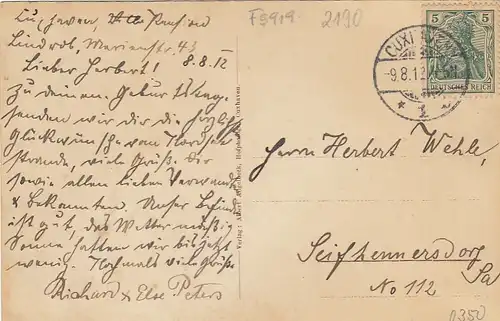 F5919 2190
Cuxhaven, Pension
Lindrob, Marienstr. 43
8.8.12
Lieber Herbert!
Zu deinem Geburtstag
senden wir dir die herzlichst
Glückwünsche vom Nordsee
strande, viele Grüße. Dir
sowie allen lieben Verwandt
& Bekannten. Unser Befind
ist gut, das Wetter mäßig
Sonne hatten wir bis jetzt
wenig. Nochmals viele Grüße
Richard & Else Peters
Verlag: Albert
5 5
DEUTSCHES REICH
CUXHAVEN
-9.8.12
* 1 *
Herrn Herbert Wehle,
Seifhennersdorf
No 112 Sa
0350